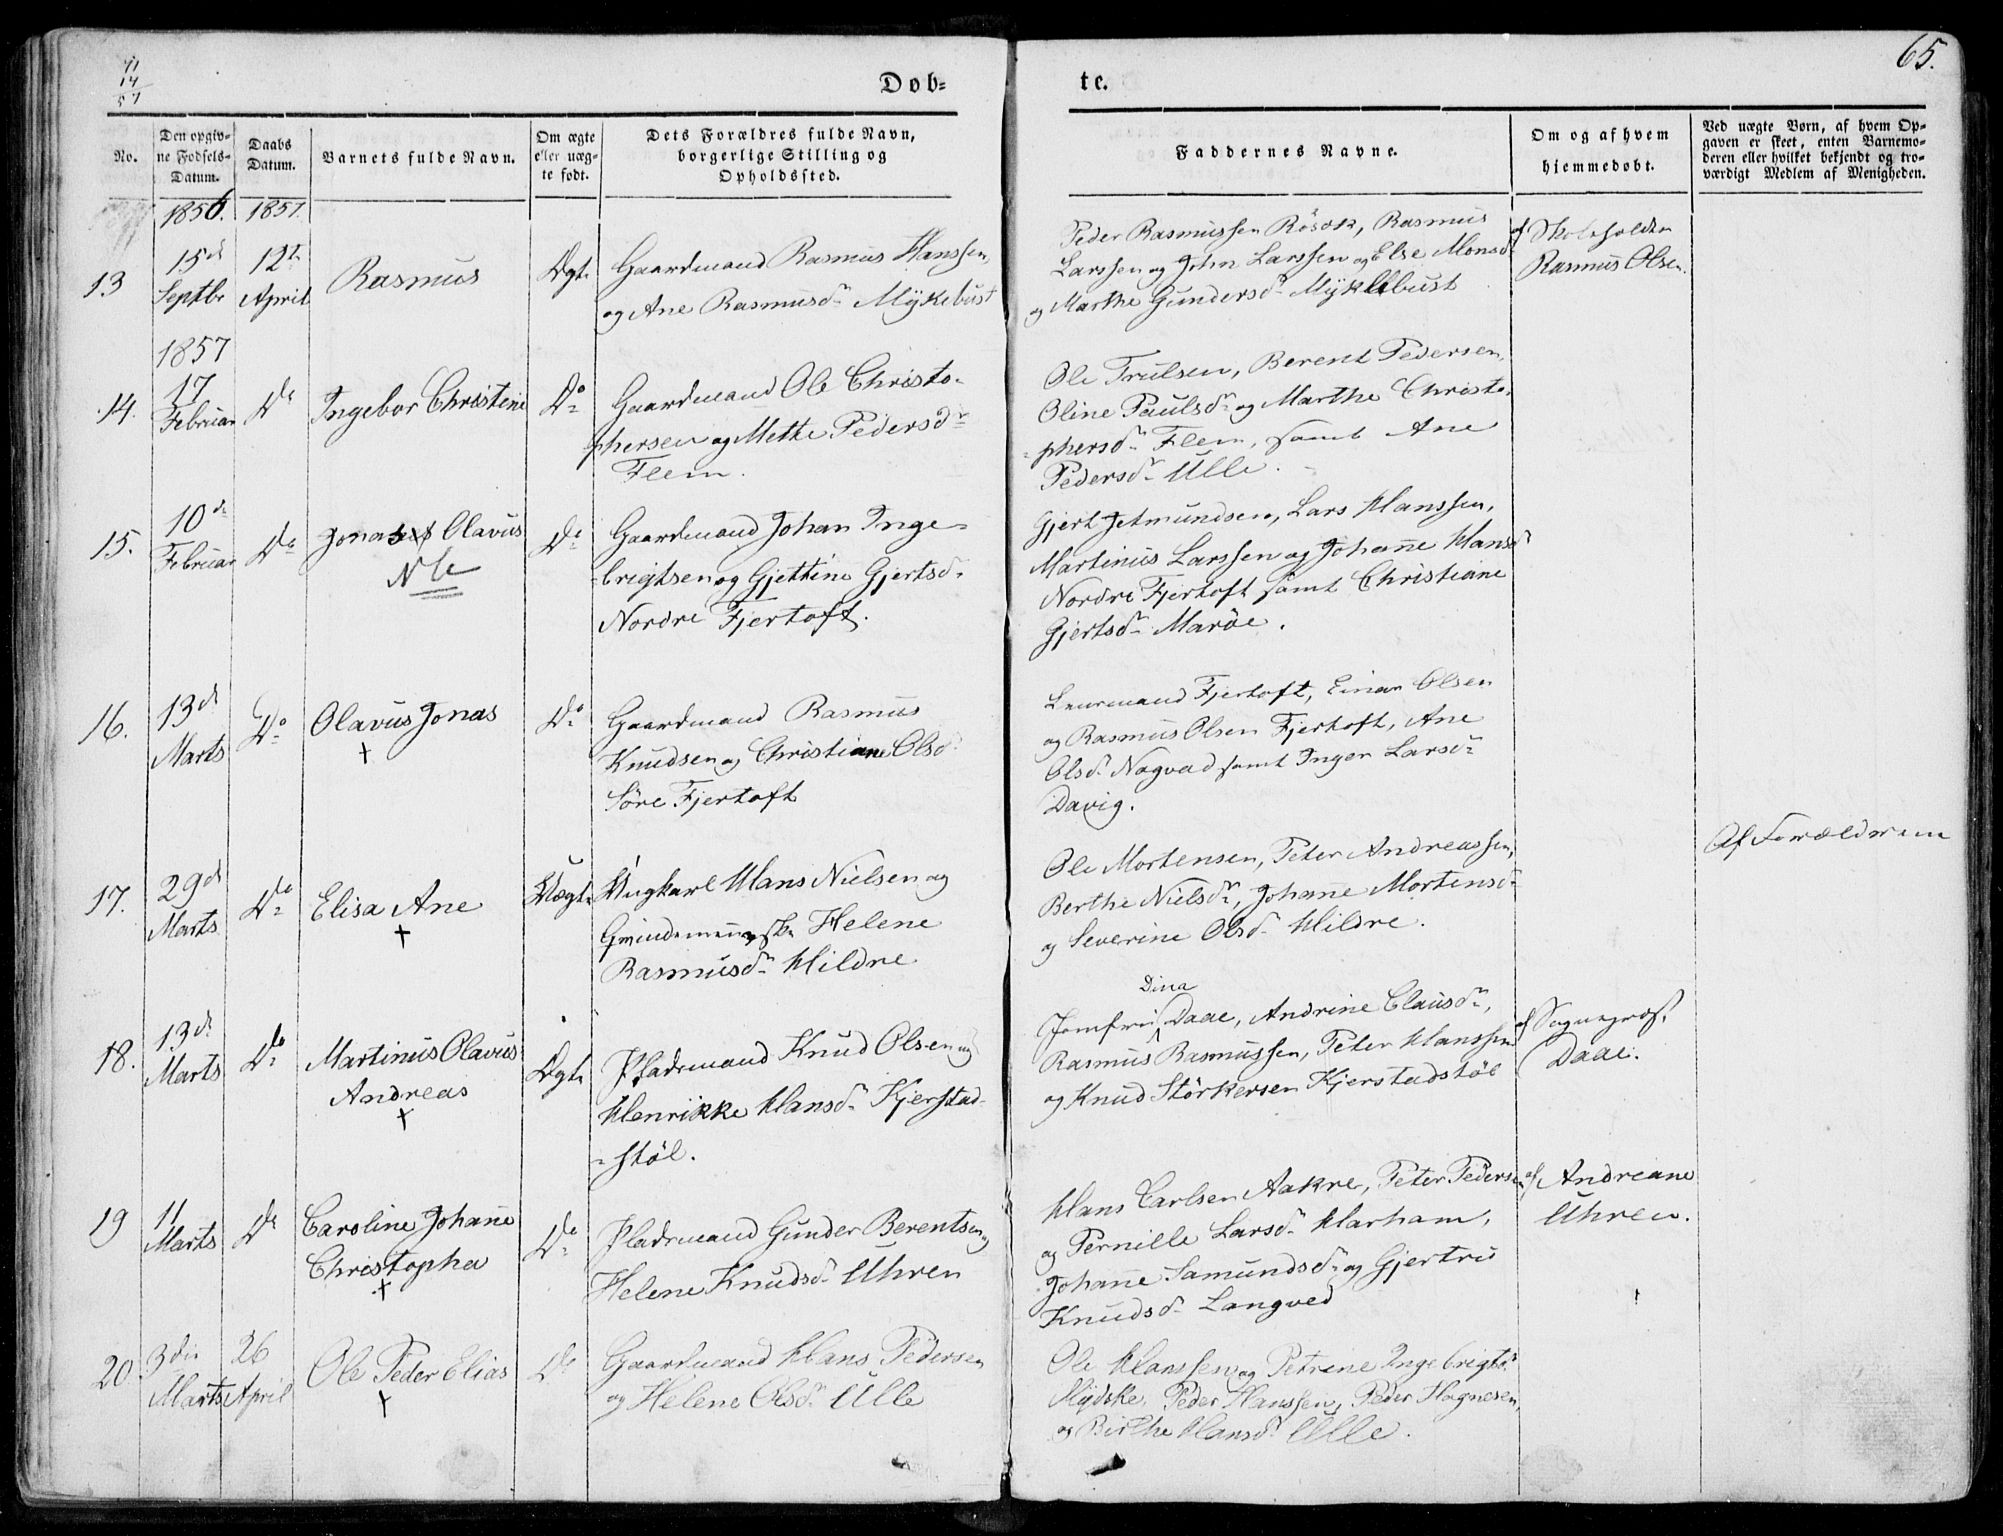 65.
Dob-
te.
No.
Den opgiv-
ne Fødsels-
Datum.
Daabs
Datum.
Barnets fulde Navn.
Om ægte
eller uæg-
te født.
Dets Forældres fulde Navn,
borgerlige Stilling og
Opholdssted.
Faddernes Navne.
Om og af hvem
hjemmedøbt.
Ved uægte Børn, af hvem Op-
gaven er skeet, enten Barnemo-
deren eller hvilket bekjendt og tro-
værdigt Medlem af Menigheden.
1856. 1857.
13
15de
Septbr
12te
April
Rasmus
Ægte
Gaardmand Rasmus Hanssen
og Ane Rasmusdr Mÿkebust
Peder Rasmussen Rösok, Rasmus
Larssen og John Larssen og Else Monsdr
og Marthe Gundersdr Mÿklebust
af Skoleholder
Rasmus Olsen.
1857
14.
17
Februar
Do
Ingebor Christine
Do
Gaardmand Ole Christo-
phersen og Mette Pedersdr
Flem.
Ole Trulsen, Berent Pedersen,
Oline Paulsdr og Marthe Christo-
phersdr Flem, samt Ane
Pedersdr Ulle.
15.
10de
Februar
Do
Jonas Olavus
NB
Do
Gaardmand Johan Inge-
brigtsen og Gjettine Gjertsdr
Nordre Fjertoft.
Gjert Jetmundsen, Lars Hanssen,
Martinus Larssen og Johanne Hansdr
Nordre Fjertoft samt Christiane
Gjertsdr Maröe.
16.
13de
Marts
Do
Olavus Jonas
+
Do
Gaardmand Rasmus
Knudsen og Christiane Olsdr
Söre Fjertoft
Fjertoft, Einar Olsen
og Rasmus Olsen Fjertoft, Ane
Olsdr Nogvad samt Inger Larsdr
Davig.
17.
29de
Marts
Do
Elisa Ane
+
Uægte
Ungkarl Hans Nielsen og
Helene
Rasmusdr Hildre
Ole Mortensen, Peter Andreassen,
Berthe Nielsdr, Johanne Mortensdr
og Severine Olsdr Hildre.
Af Forældrene
18.
13de
Marts
Do
Martinus Olavus
Andreas
+
Ægte
Pladsmand Knud Olsen og
Henrikke Hansdr Kjerstad-
-støl.
Dina
Jomfru Daae, Andrine Clausdr,
Rasmus Rasmussen, Peter Hanssen
og Knud Störkersen Kjerstadstöl
af Sognepræst
Daae.
19
11
Marts
Do
Caroline Johanne
Christopha
+
Do
Pladsmand Gunder Berentsen og
Helene Knudsdr Uhren
Hans Carlsen Aakre, Peter Pedersen
og Pernille Larsdr Harham,
Johanne Samundsdr og Gjertru
Knudsdr Langved
af Andreane
Uhren.
20
3die
Marts
26
April
Ole Peder Elias
+
Do
Gaardmand Hans Pedersen
og Helene Olsdr Ulle
Ole Hanssen og Petrene Ingebrigtsdr
Peder Hanssen, Peder Hagnesen,
og Birthe Hansdr Ulle.